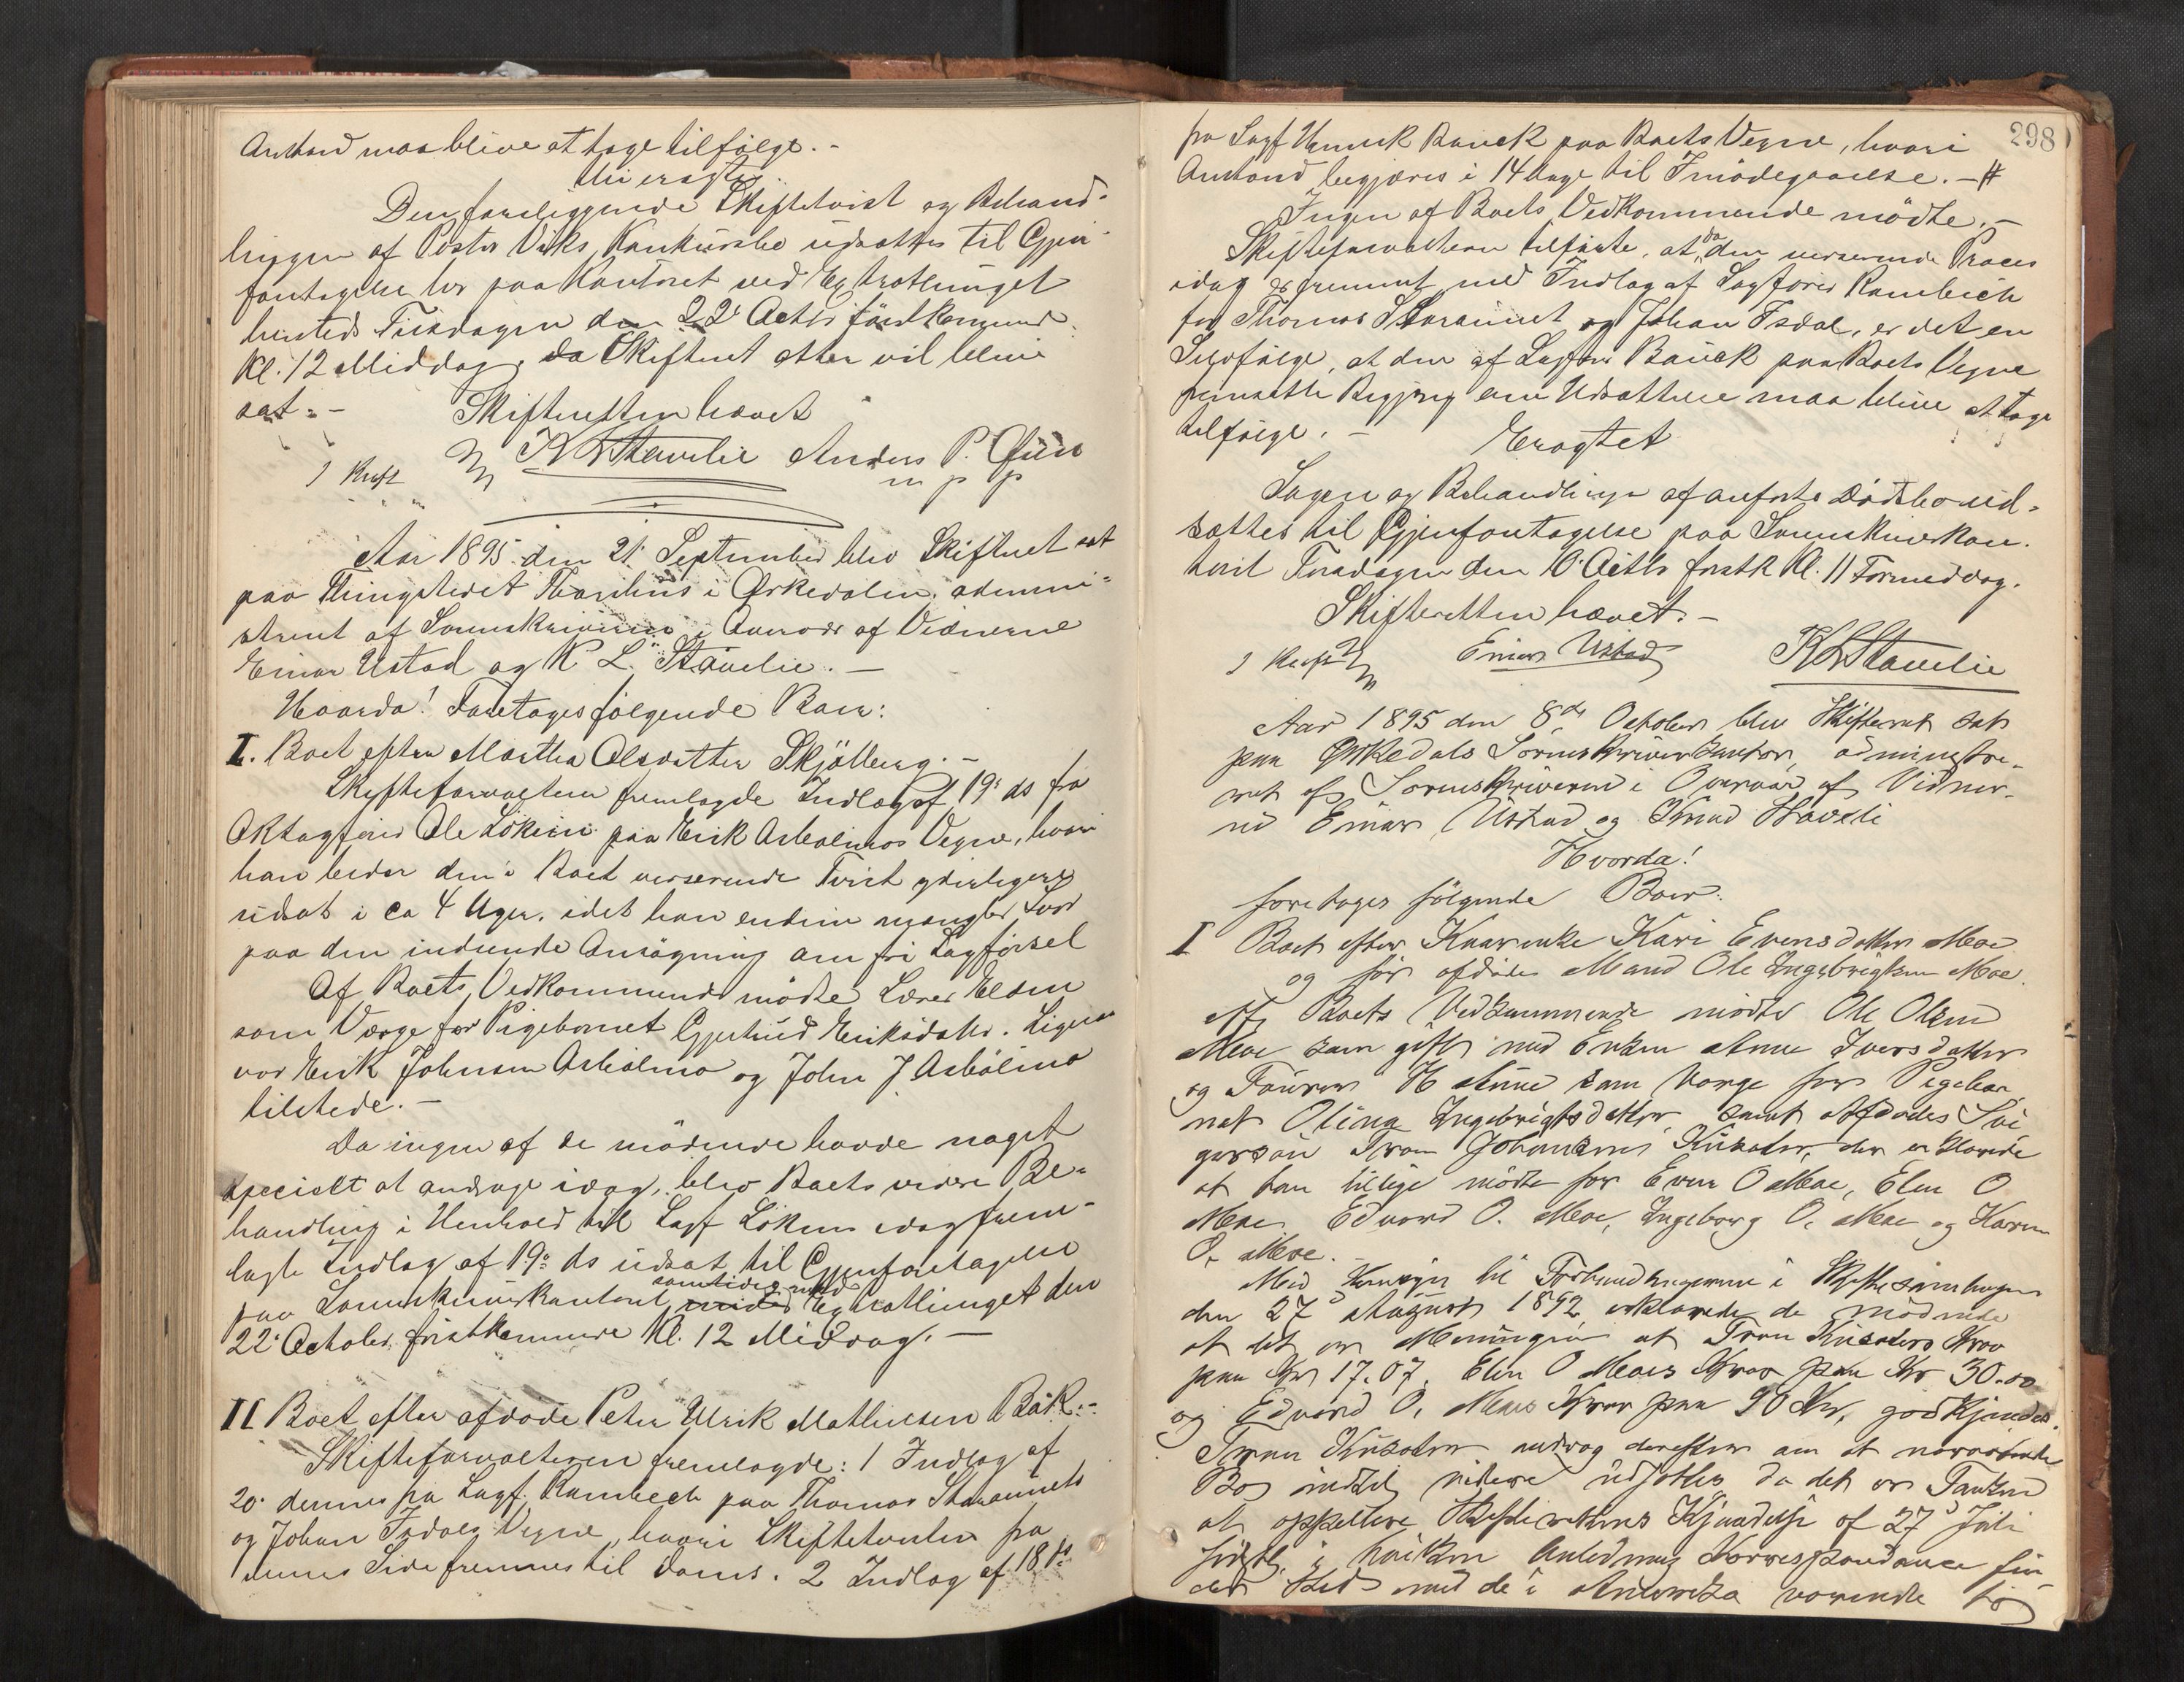 Anstand maa blive at tage tilfølge. -
Eragtet
Den foreliggende Skiftetvist og Behand-
lingen af Peter Viks Konkursbo udsættes til Gjen-
foretagelse her paa Kontoret ved Extrathinget
hersteds Tirsdagen den 22' Octbr førstkommende
Kl. 12 Middag, da Skifteret atter vil blive
sat. -
Skifteretten hævet
K L Stavelie Anders P.
m p p
Aar 1895 den 21' September blev Skifteret sat
paa Thingstedet Bardhus i Ørkedalen, admini-
streret af Sorenskriveren i Overvær af Vidnerne
Einar Ustad og K L. Stavelie. -
Hvorda! Foretoges følgende Boer:
I. Boet efter Martha Olsdatter Skjølberg. -
Skifteforvalteren fremlagde Indlæg af 19' ds fra
Oktagfører Ole Løken paa Erik Asbølmos Vegne, hvori
han beder den i Boet verserende Tvist yderligere
udsat i ca 4 Uger, idet han endnu mangler Svar
paa den indsendte Ansøgning om fri Sagførsel
Af Boets Vedkommende mødte Lærer Elsen
som Værge for Pigebarnet Gjertrud Eriksdatter. Ligesaa
var Erik Johnsen Asbølmo og John J Asbølmo
tilstede. -
Da ingen af de mødende havde noget
specielt at andrage idag, blev Boets videre Be-
handling i Henhold til Sagf Løkens idag frem-
lagte Indlæg af 19' ds udsat til Gjenforetagelse
samtidig med
paa Sorenskriverkontoret under Extrathinget den
22' October førstkommende Kl. 12 Middag. -
II Boet efter afdøde Peter Ulrik Mathiesen Bøk. -
Skifteforvalteren fremlagde: 1 Indlæg af
20' dennes fra Sagf. Rambech paa Thomas Skaraunets
og Johan Isdals Vegne, hvori Skiftetvisten fra
dennes Side fremmes til Doms. 2 Indlæg af 18 ds
298
fra Sagf Bauck paa Boets Vegne, hvori
Anstand begjæres i 14 Dage til Imødegaaelse. - #
Ingen af Boets Vedkommende mødte. -
da
Skifteforvalteren tilførte, at den verserende Proces
idag er fremmet med Indlæg af Sagfører Rambech
for Thomas Skaraunet og Johan Isdal, er det en
Selvfølge, at den af Sagfører Bauck paa Boets Vegne
fremsatte Begjæring om Udsættelse maa blive at tage
tilfølge. -
Eragtet
Sagen og Behandlingen af anførte Dødsbo ud-
sættes til Gjenforetagelse paa Sorenskriverkon-
toret Torsdagen den 10' Octbr førstk Kl. 11 Formiddag.
Skifteretten hævet. -
Einar Ustad K L Stavelie
Aar 1895 den 8de October blev Skifteret sat
paa Ørkedals Sorenskriverkontor, administre-
ret af Sorenskriveren i Overvær af Vidner-
ne Einar Ustad og Knud Staveli
Hvorda!
foretages følgende Boer:
I Boet efter Kaarenke Kari Evensdatter Moe
og før afdøde Mand Ole Ingebrigtsen Moe.
Af Boets Vedkommende mødte Ole Olsen
Moe som gift med Enken Anne Iversdatter
og H Aune som Værge for Pigebar-
net Olina Ingebrigtsdatter samt Afdødes Svi-
gersøn Tron Johansen Kusøter, der erklærede
at han tillige mødte for Even O Moe, Elen O
Moe, Edvard O. Moe, Ingeborg O. Moe og Karen
O. Moe. -
Med Hensyn til Forhandlingerne i Skiftesamlingen
den 27' August 1892 erklærede de mødende
at det er Meningen at Tron Kusøters Krav
paa Kr 17.07, Elen O Moes Krav paa Kr 30.00
og Edvard O. Moes Krav paa 90 Kr, godkjendes.
Tron Kusøter androg derefter om at nærværende
Bo indtil videre udsættes da det er Tanken
at appellere Skifterettens Kjendelse af 27' Juli
sidstl, i hvilken Anledning Korrespondance fin-
der Sted med de i Amerika værende